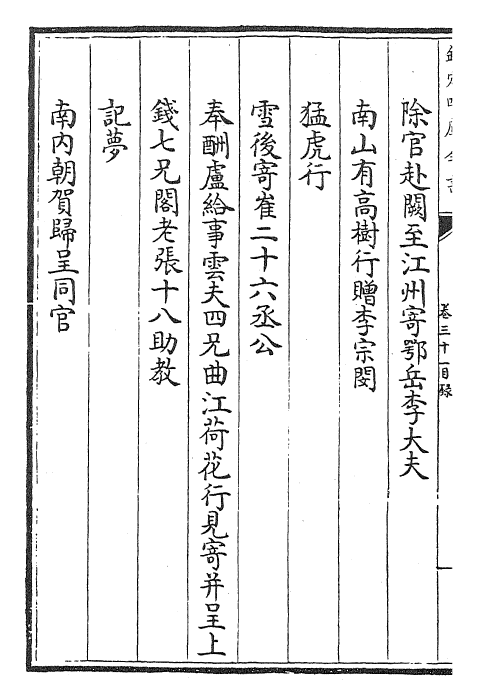 欽定四庫全書
卷三十一目錄
除官赴闕至江州寄鄂岳李大夫
南山有高樹行贈李宗閔
猛虎行
雪後寄崔二十六丞公
奉酬盧給事雲夫四兄曲江荷花行見寄并呈上
錢七兄閣老張十八助教
記夢
南内朝賀歸呈同官